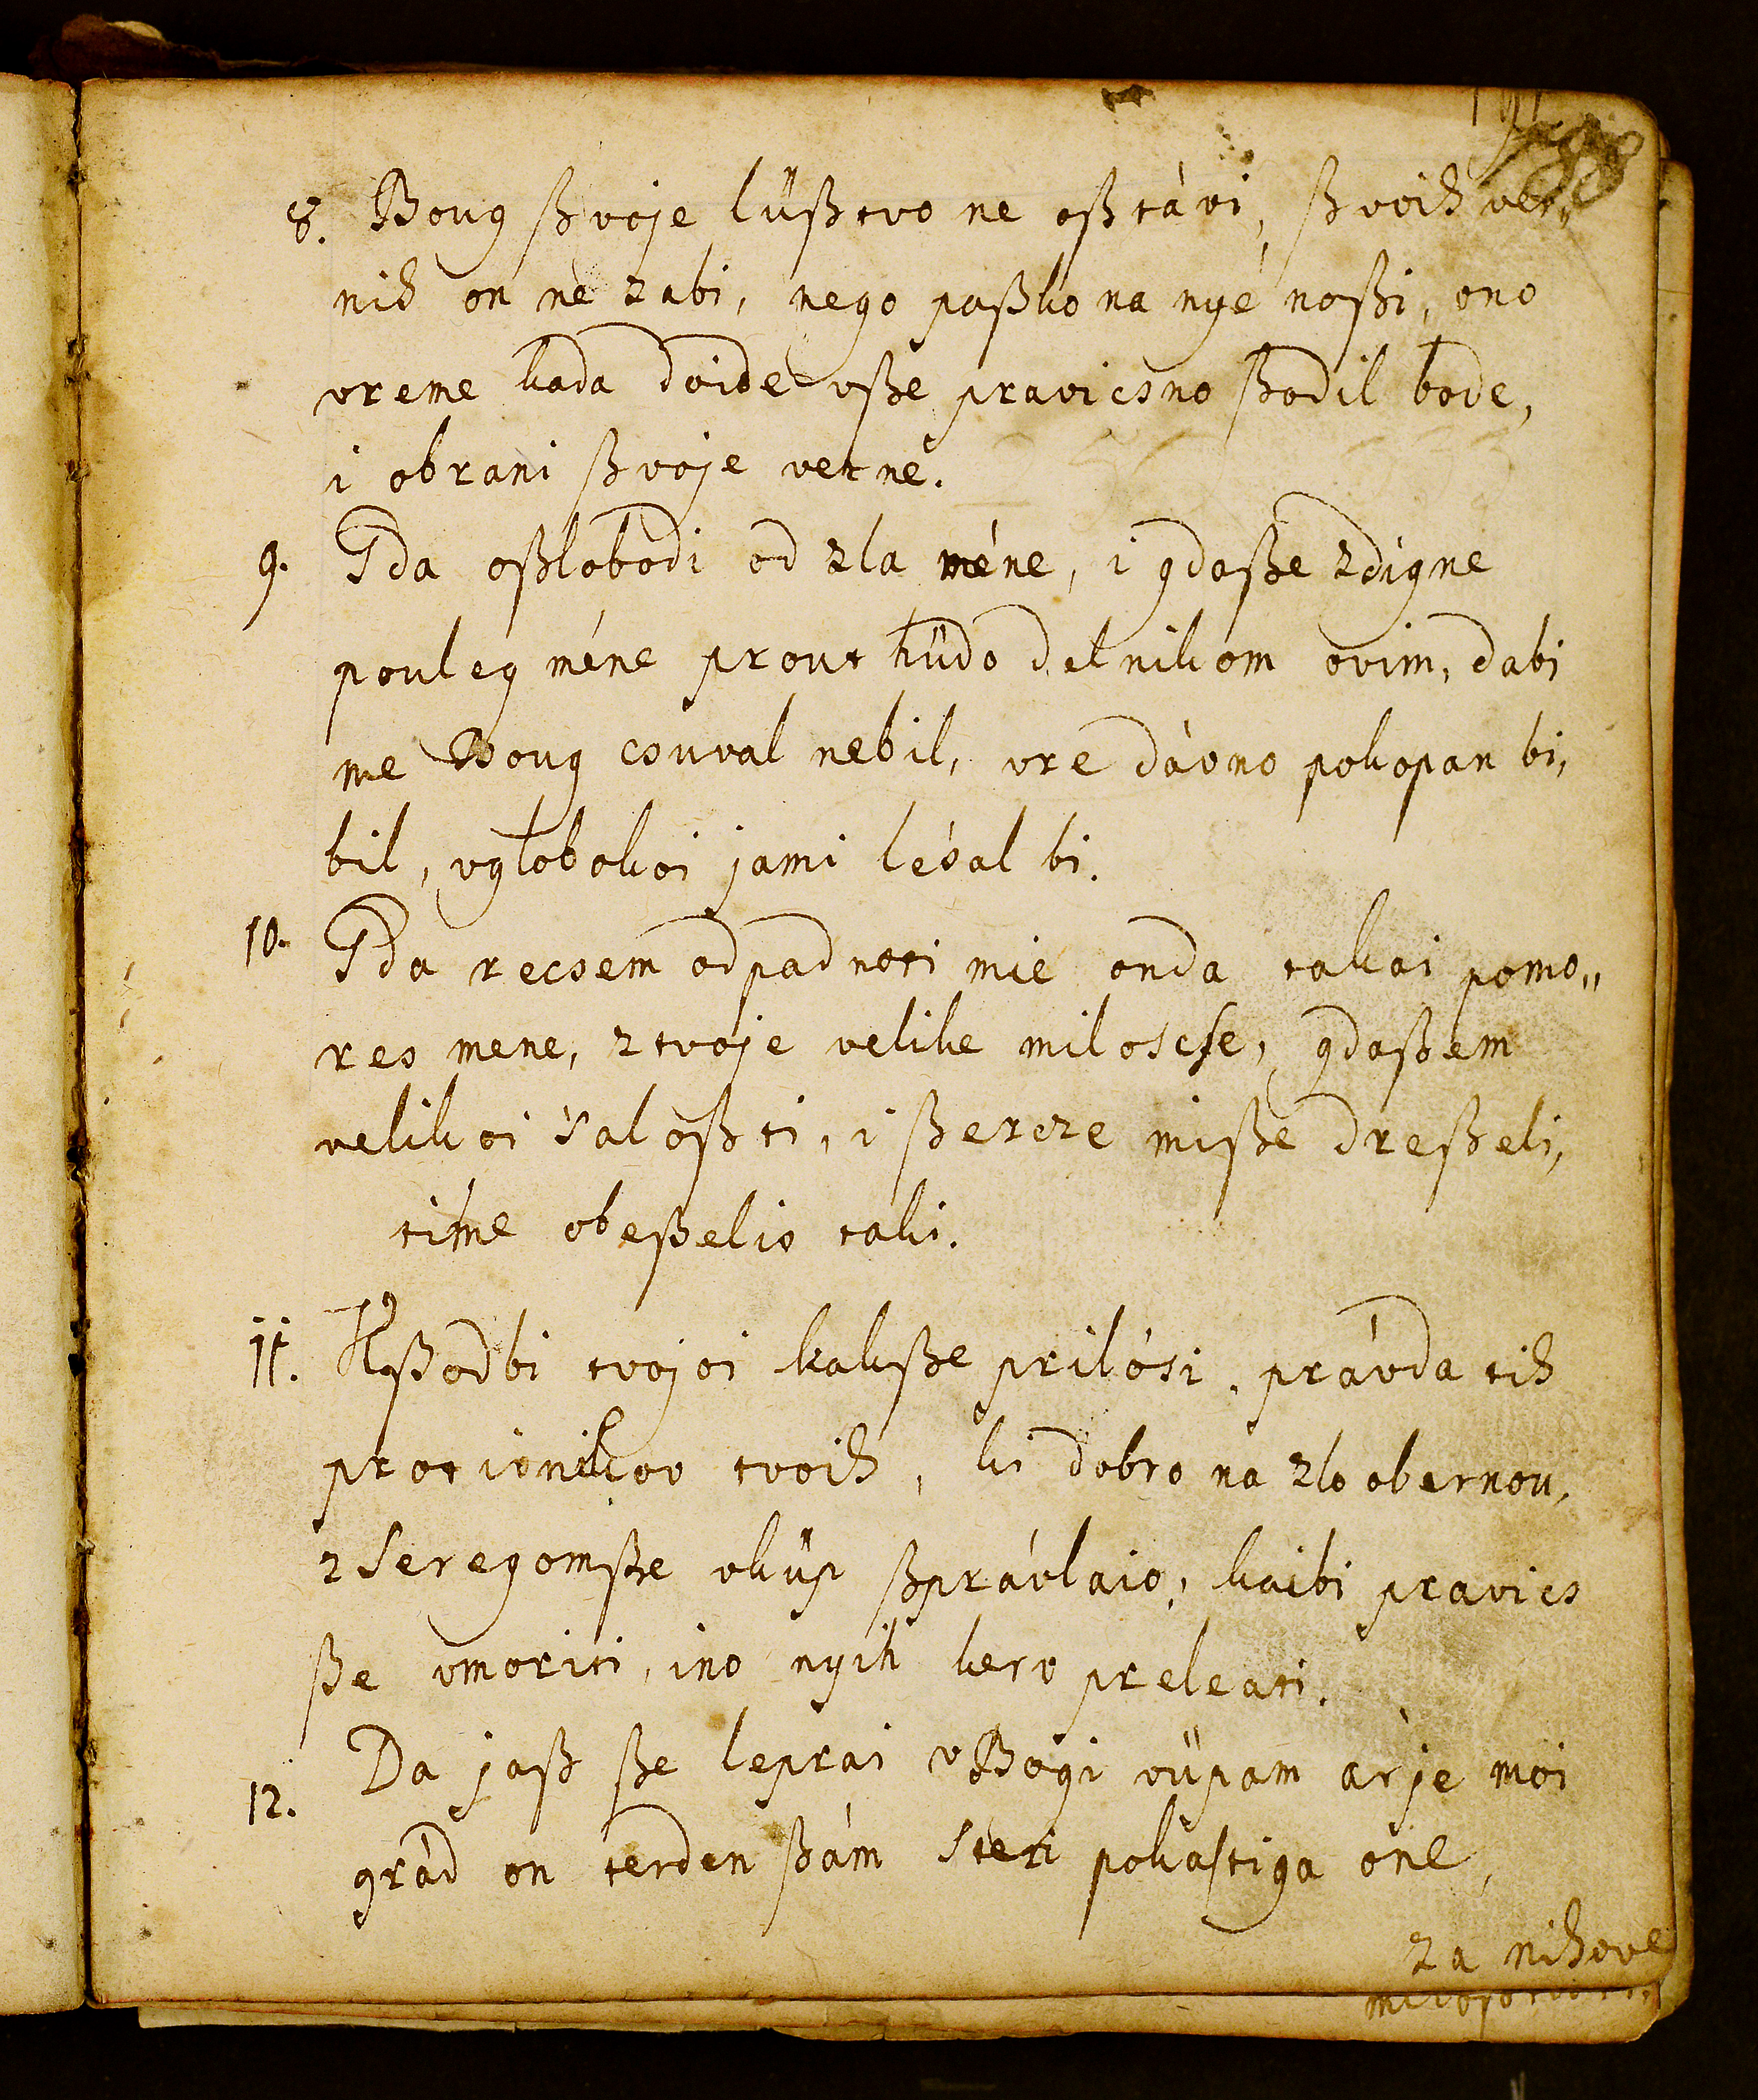 8. Boug ßvoje lüßtvo ne oßtávi, ßvoih ver„
nih on ne zabi, nego paßko na nyé noßi, ono
vreme kada doide vße pravicsno ßodil bode,
i obrani ßvoje verne.
9. Gda oßlobodi od zla méne, i gdaße zdigne
pouleg méne prout hüdo delnikom ovim, dabi
me Boug csuval nebil, vre dávno pokopan bi,
bil, vglobokoi jami lésal bi.
10. Gda recsem odpadnoti mie onda takai pomo„
res mene, ztvoje velike miloscse, gdaßem
velikoi saloßti, i ßercze miße dreßeli,
time obeßelis taki.
11. Kßodbi tvojoi kakße prilósi, právda tih
protivnikov tvoih, ki dobro na zlo obernou,
zseregomße vküp ßprávlaio, kaibi pravics
ße vmoriti, ino nyih kerv preleati.
12. Da jaß ße leprai vBogi vüpam ár je moi
grád on terden ßám steri pokastiga one,
za nihove